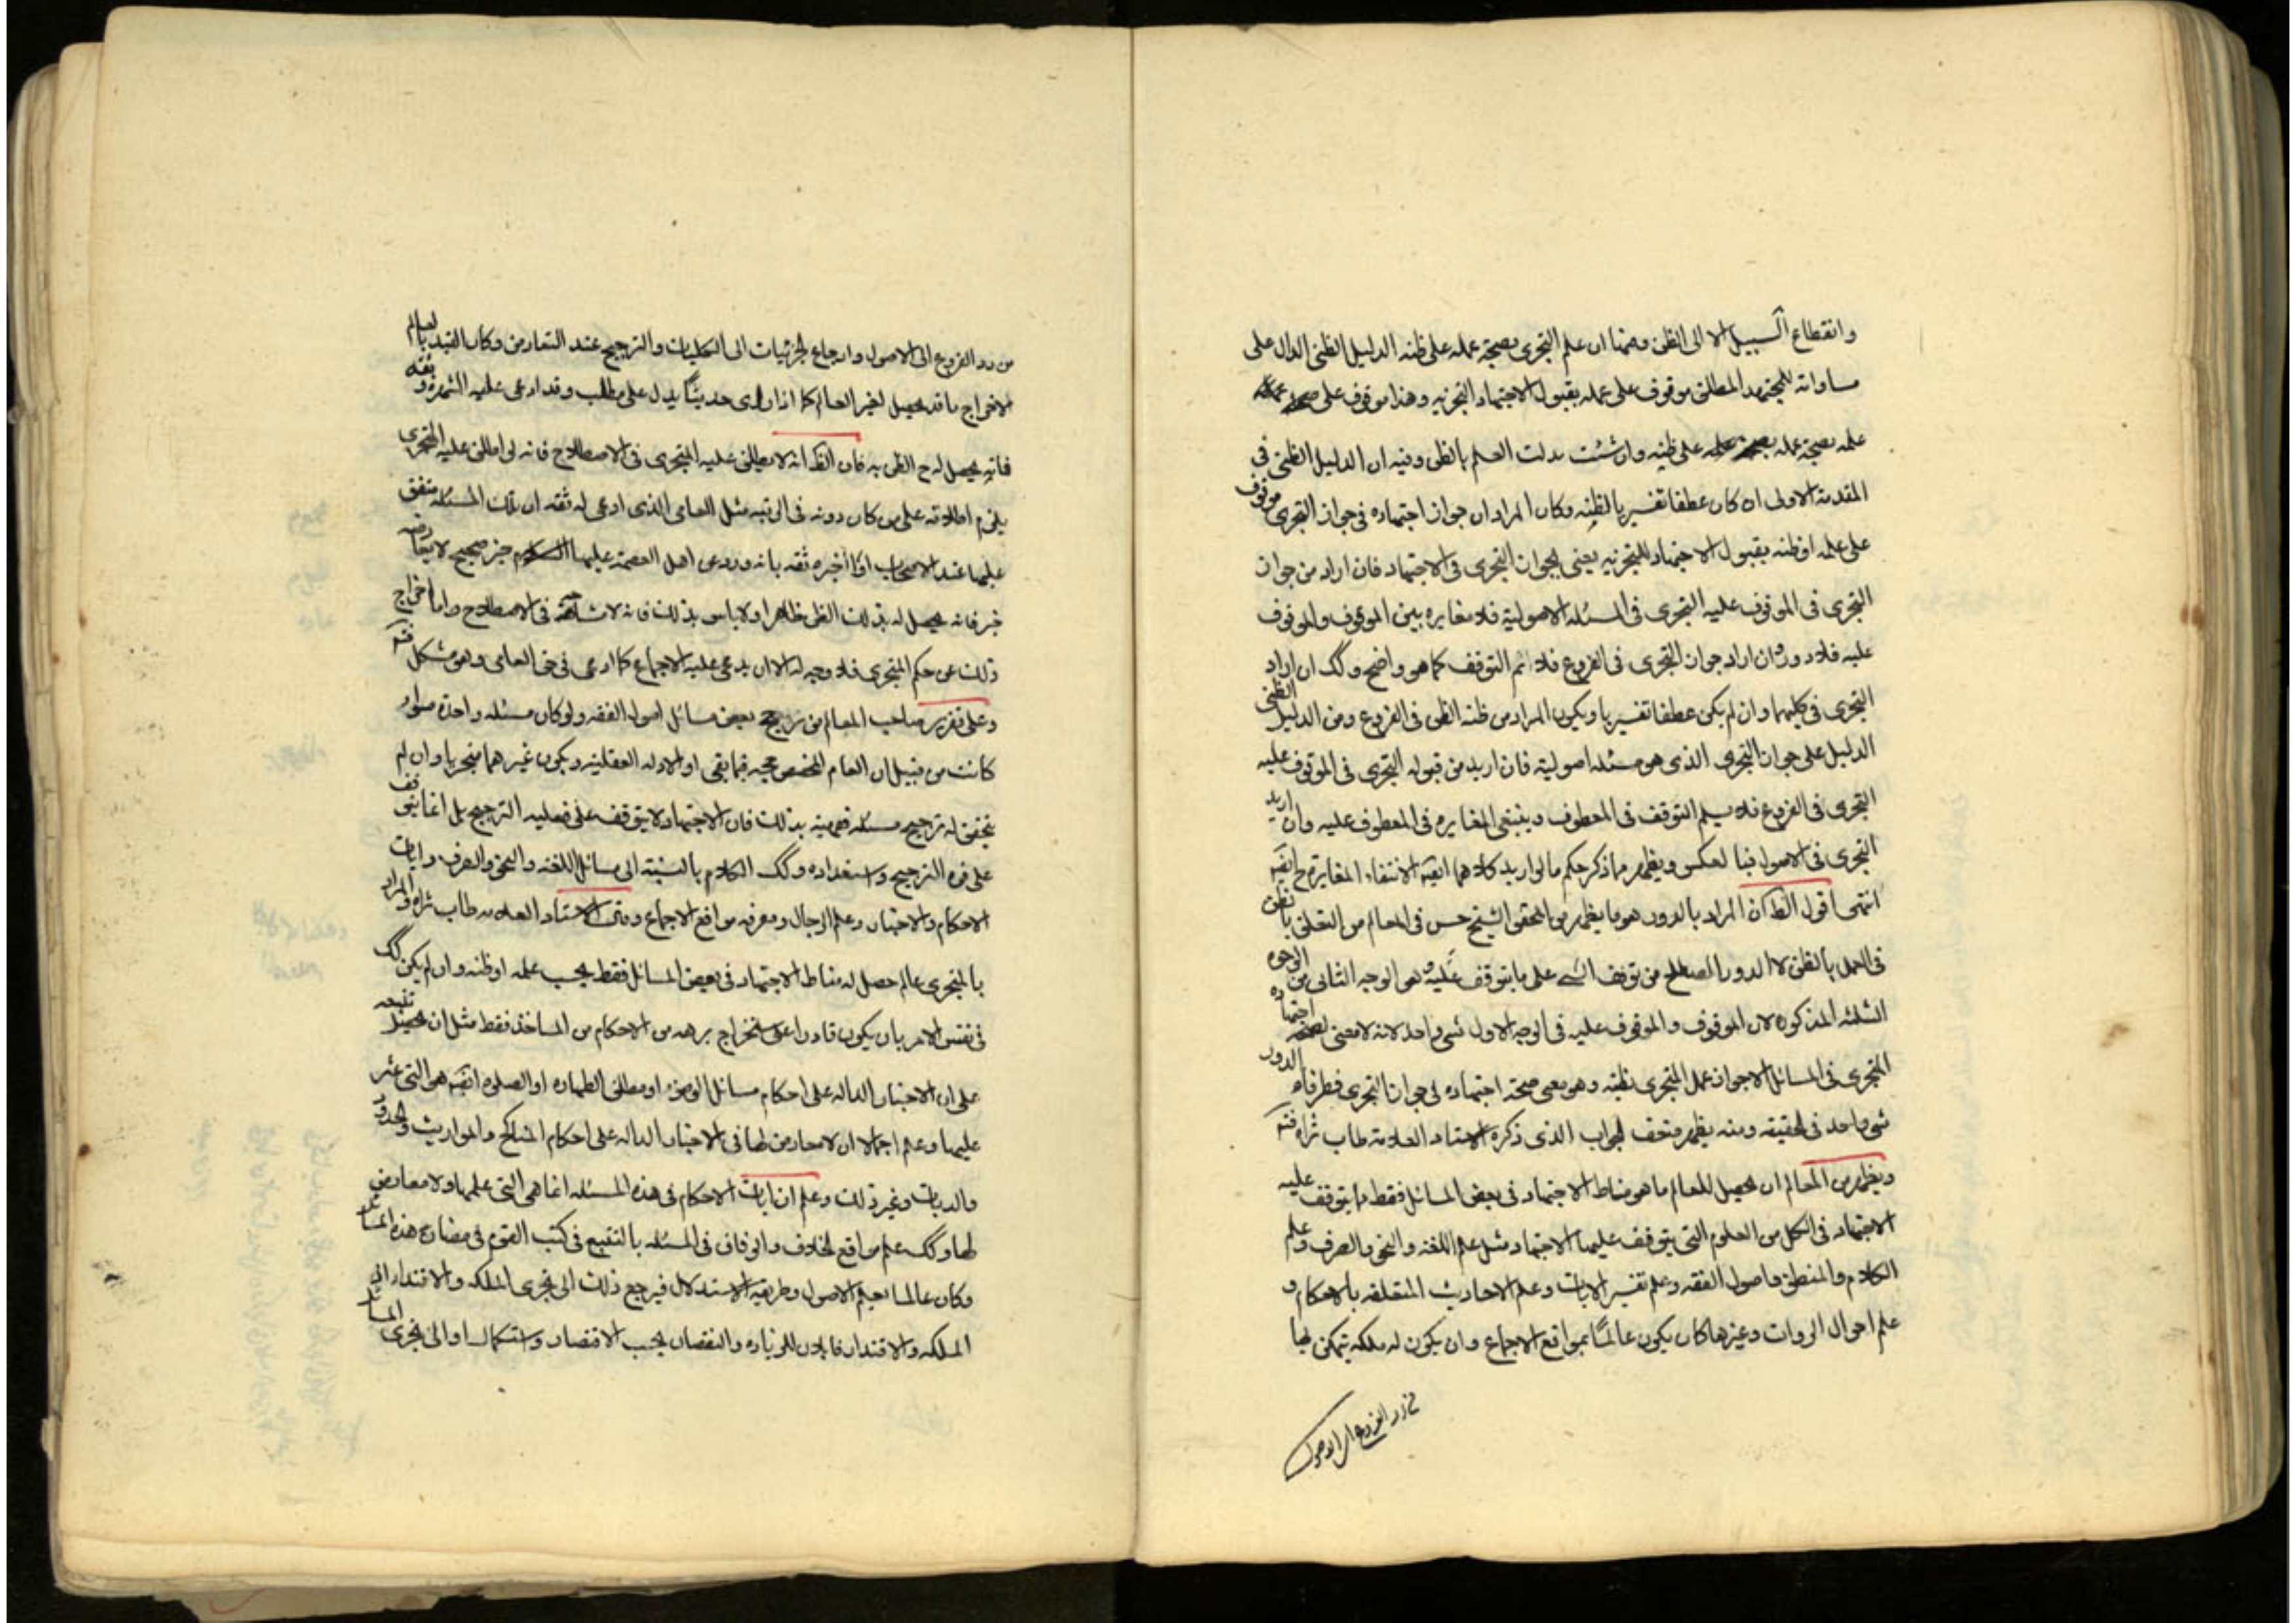 وانقطاع السبيل الا الى الظن وهمنا ان علم التجزى بصحة عمله على ظنه الدليل الظنى الدال على
مساواته للمجتهد المطلق موقوف على عمله بقبول الاجتهاد التجزيه وهذا موقوف على
علمه بصحة عمله على ظنه وان شئت بدلت العلم بالظن وفيه ان الدليل الظنى فى
المقدمة الاولى ان كان عطفا تفسيريا لظنه وكان المراد ان جواز اجتهاده فى جواز التجزى موقوف
على علمه او ظنه بقبول الاجتهاد للتجزيه يعنى لجواز التجزى فى الاجتهاد فان اراد من جواز
التجزى فى الموقوف عليه التجزى فى المسئله الاصولية فلا مغايره بين الموقوف والموقوف
عليه فلا دور وان اراد جواز التجزى فى الفروع فلا نم التوقف كما هو واضح وكك ان اراد
التجزى فى كليهما وان لم يكن عطفا تفسيريا ويكون المراد من ظنه الظن فى الفروع ومن الدليل الظنى
الدليل على جواز التجزى الذى هو مسئله اصولية فان اريد من قبوله التجزى فى الموقوف عليه
التجزى فى الفروع فلا يسلم التوقف فى المعطوف وينبغى المغايره فى المعطوف عليه وان اريد
التجزى فى الاصول فبالعكس ويظهر مما ذكر حكم ما لو اريد كلاهما ايضه لانتفاء المغايرة ح ايضه
انتهى اقول الظ ان المراد بالدور هو ما يظهر من المحقق الشيخ حسن فى المعالم من التعلق بالظن
فى العمل بالظن لا الدور المصطلح من توقف الشى على ما يتوقف عليه وهو الوجه الثانى من الوجوه
الثلثه المذكوره لان الموقوف والموقوف عليه فى الوجه الاول شى واحد لانه لا معنى لصحة اجتهاده
المتجزى فى المسائل الا جواز عمل المتجزى بظنه وهو معنى صحة اجتهاده فى جواز التجزى فطرفاه الدور
شى واحد فى الحقيقه ومنه يظهر ضعف الجواب الذى ذكره الاستاد العلامة طاب ثراه فتم
ويظهر من المعالم ان يحصل للعالم ما هو مناط الاجتهاد فى بعض المسائل فقط ما يتوقف عليه
الاجتهاد فى الكل من العلوم التى يتوقف عليها الاجتهاد مثل علم اللغة والنحو والصرف وعلم
الكلام والمنطق واصول الفقه وعلم تفسير الايات وعلم الاحاديث المتعلقه بالاحكام و
علم احوال الروات وغيرها كان يكون عالمًا بمواقع الاجماع وان يكون له ملكه يتمكن بها
من رد الفروع الى الاصول
من رد الفروع الى الاصول وارجاع الجزئيات الى الكليات والترجيح عند التعارض وكان القيد بالعالم
لاخراج ما قد يحصل لغير العالم كما اذا راى حديثًا يدل على مطلب وقد ادعى عليه الشهرة ثقه
فانه يحصل له ح الظن به فان الظ انه لا يطلق عليه المتجزى فى الاصطلاح فانه لو اطلق عليه المتجزى
يلزم اطلاقه على من كان دونه فى الرتبه مثل العامى الذى ادعى له ثقه ان تلك المسئله متفق
عليها عند الاصحاب او اخبره ثقه بانه ورد عن اهل العصمة عليهم السلام خبر صحيح لا يعارضه
خبر فانه يحصل له بذلك الظن ظاهرا ولا باس بذلك فانه لا مشاحة فى الاصطلاح واما اخراج
ذلك عن حكم المتجزى فلا وجه له الا ان يدعى عليه الاجماع كما ادعى فى حق العامى وهو مشكل فتم
وعلى تقرير صاحب المعالم من رجح بعض مسائل اصول الفقه ولو كان مسئله واحدة
كانت من قبيل ان العام المخصص حجه فيما بقى او الادله العقليه ويكون غيرهما متجزيا وان لم
يتحقق له ترجيح مسئله فقهية بذلك فان الاجتهاد لا يتوقف على فعليه الترجيح بل انما يتوقف
على قوه الترجيح واستعداده وكك الكلام بالنسبة الى مسائل اللغة والنحو والصرف وايات
الاحكام والاخبار وعلم الرجال ومعرفه مواقع الاجماع الاستاد العلامه طاب ثراه والمراد
بالمتجزى عالم حصل له مناط الاجتهاد فى بعض المسائل فقط بحسب علمه او ظنه وان لم يكن كك
فى نفس الامر بان يكون قادرا على استخراج برهه من الاحكام من الماخذ فقط مثل ان يحصل تتبعه
على ان الاخبار الداله على احكام مسائل الوضوء او مطلق الطهاره او الصلوه ايضه هى التى عثر
عليها وعلم اجمالا ان لا معارض لها فى الاخبار الداله على احكام المناكح والمواريث والحدود
والديات وغير ذلك وعلم ان ايات الاحكام فى هذه المسئله انما هى التى علمها ولا معارض
لها وكك علم مواقع الخلاف والوفاق فى المسئله بالتتبع فى كتب القوم فى مضارع هذه المسائل
وكان عالما بعلم الاصول وطريقه الاستدلال فيرجع ذلك الى تجزى الملكه والاقتدار
الملكه والاقتدار قابلان للزياده والنقصان بحسب الاقتصار واستكمال او الى تجزى المسائل